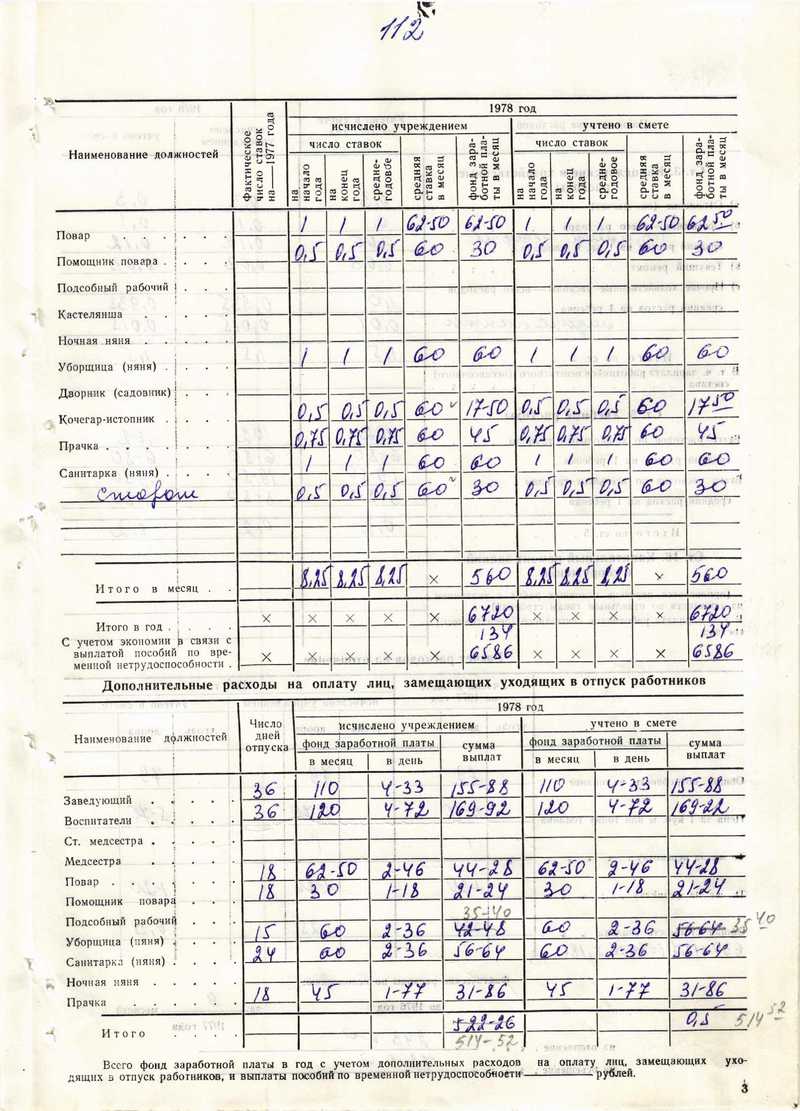 112
1978 год
исчислено учреждением учтено в смете
Наименование должностей Фактическое число ставок на —1977 года число ставок средняя ставка в месяц фонд заработной платы в месяц число ставок средняя ставка в месяц фонд заработной платы в месяц
на начало года на конец года средне-годовое на начало года на конец года средне-годовое
Повар . . . . 1 1 1 62-50 62-50 1 1 1 62-50 62 50
Помощник повара . . . . 0,5 0,5 0,5 60 30 0,5 0,5 0,5 60 30
Подсобный рабочий . . .
Кастелянша . . . .
Ночная няня . . . . .
Уборщица (няни) . . . . 1 1 1 60 60 1 1 1 60 60
Дворник (садовник) . . .
Кочегар-истопник . . . . 0,5 0,5 0,5 60 17-50 0,5 0,5 0,5 60 17 50
Прачка . . . . . . . 0,75 0,75 0,75 60 45 0,75 0,75 0,75 60 45
Санитарка (няня) . . . . 1 1 1 60 60 1 1 1 60 60
сторож 0,5 0,5 0,5 60 30 0,5 0,5 0,5 60 30
Итого в месяц . . 8,25 8,25 8,25 × 560 8,25 8,25 8,25 × 560
Итого в год . . . . × × × × × 6720 × × × × 6720
134 134
С учетом экономии в связи с
выплатой пособий по вре-
менной нетрудоспособности . × × × × × 6586 × × × × 6586
Дополнительные расходы на оплату лиц, замещающих уходящих в отпуск работников
1978 год
Наименование должностей Число дней отпуска исчислено учреждением учтено в смете
фонд заработной платы сумма выплат фонд заработной платы сумма выплат
в месяц в день в месяц в день
Заведующий . . . . 36 110 4-33 155-88 110 4-33 155-88
Воспитатели . . . . . 36 120 4-72 169-92 120 4-72 169-22
Ст. медсестра . . . . .
Медсестра . . . . .
Повар . . . . . . . 18 62-50 2-46 44-28 62-50 2-46 44-28
Помощник повара . . . 18 30 1-18 21-24 30 1-18 21-24
35-40
Подсобный рабочий . . .
Уборщица (няня) . . . . 15 60 2-36 42-48 60 2-36 56-64 35 40
Санитарка (няня) . . . . 24 60 2-36 56-64 60 2-36 56-64
Ночная няня . . . . .
Прачка . . . . . . 18 45 1-77 31-86 45 1-77 31-86
Итого . . . . 522-26 0,5 514 52
514-52
Всего фонд заработной платы в год с учетом дополнительных расходов на оплату лиц, замещающих ухо-
дящих в отпуск работников, и выплаты пособий по временной нетрудоспособности рублей.
3